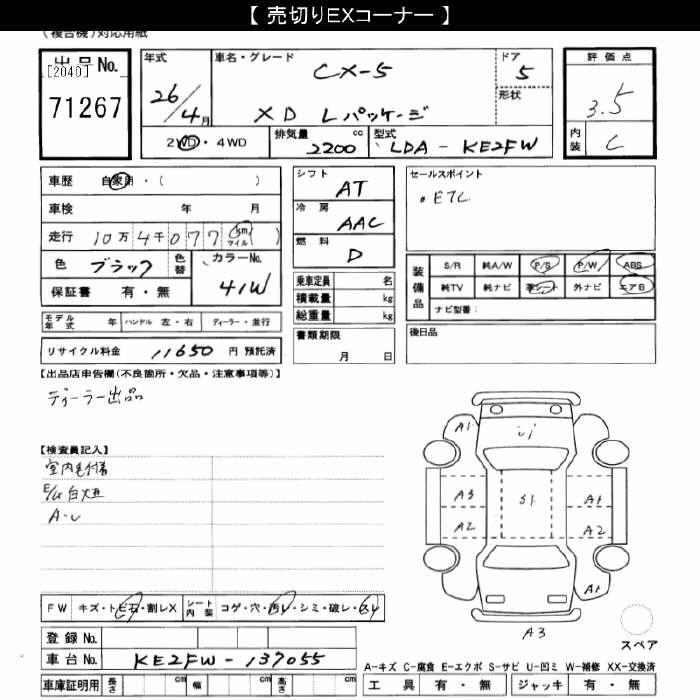 【 売切りEXコーナー 】
(複合機)対応用紙
出品No.
[2040]
71267
年式
26/4月
車名・グレード
CX-5
XD Lパッケージ
ドア
5
形状
評価点
3.5
内装
C
2WD・4WD
排気量 2200 cc
型式 LDA - KE2FW
車歴 自家用・( )
車検 年 月
走行 10万4千077 km マイル ( )
色 ブラック 色替
カラーNo. 41W
保証書 有・無
モデル年式 年 ハンドル 左・右 ディーラー・並行
リサイクル料金 11650 円 預託済
シフト AT
冷房 AAC
燃料 D
乗車定員 名
積載量 kg
総重量 kg
書類期限
月 日
セールスポイント
・ETC
装備品
S/R 純A/W P/S P/W ABS
純TV 純ナビ 革シート 外ナビ エアB
ナビ型番:
後日品
【出品店申告欄(不良箇所・欠品・注意事項等)】
ディーラー出品
【検査員記入】
室内毛付着
A-U
A1
A3
A2
S1
A1
A2
A1
A3
スペア
FW キズ・トビ石・割レX
シート内装 コゲ・穴・汚レ・シミ・破レ・スレ
登録No.
車台No. KE2FW - 137055
車庫証明用 長さ cm 幅 cm 高さ cm
A-キズ C-腐食 E-エクボ S-サビ U-凹ミ W-補修 XX-交換済
工具 有・無 ジャッキ 有・無